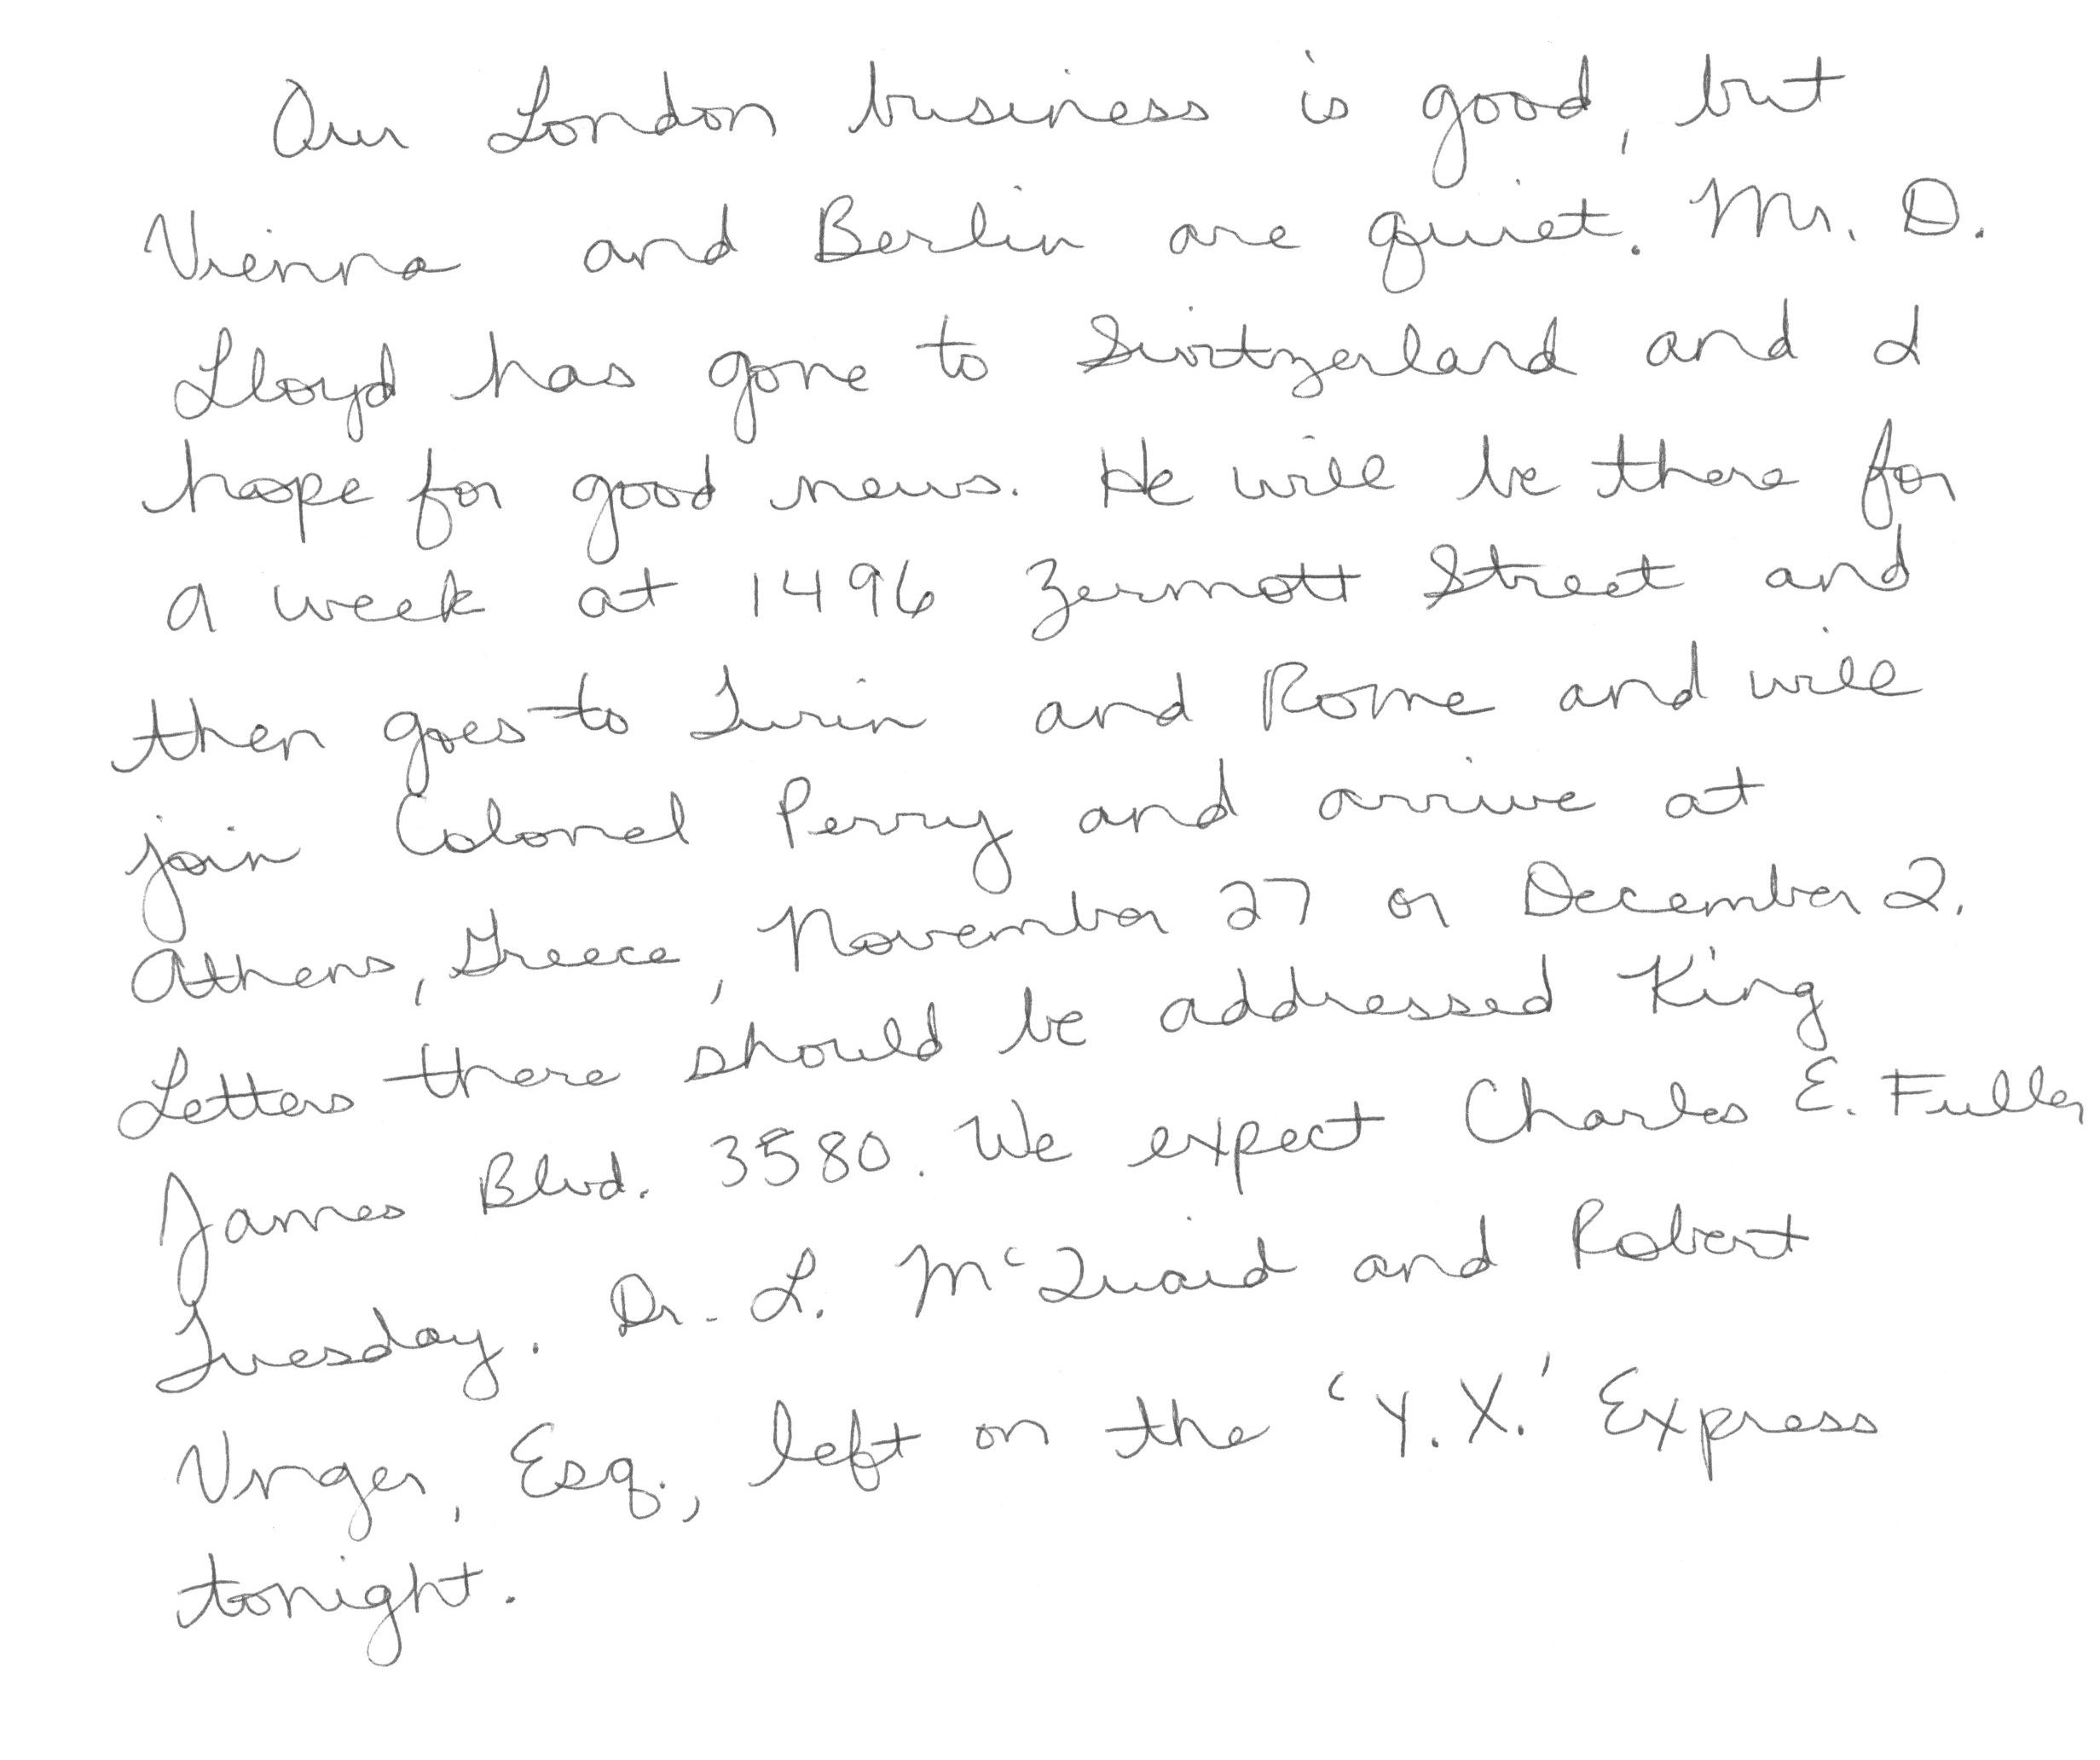 Our London business is good, but
Vienna and Berlin are quiet. Mr. D.
Lloyd has gone to Switzerland and I
hope for good news. He will be there for
a week at 1496 Zermott Street and
then goes to Turin and Rome and will
join Colonel Perry and arrive at
Athens, Greece, November 27 or December 2.
Letters there should be addressed King
James Blvd. 3580. We expect Charles E. Fuller
Tuesday. Dr. L. McQuaid and Robert
Unger, Esq., left on the 'Y.X.' Express
tonight.